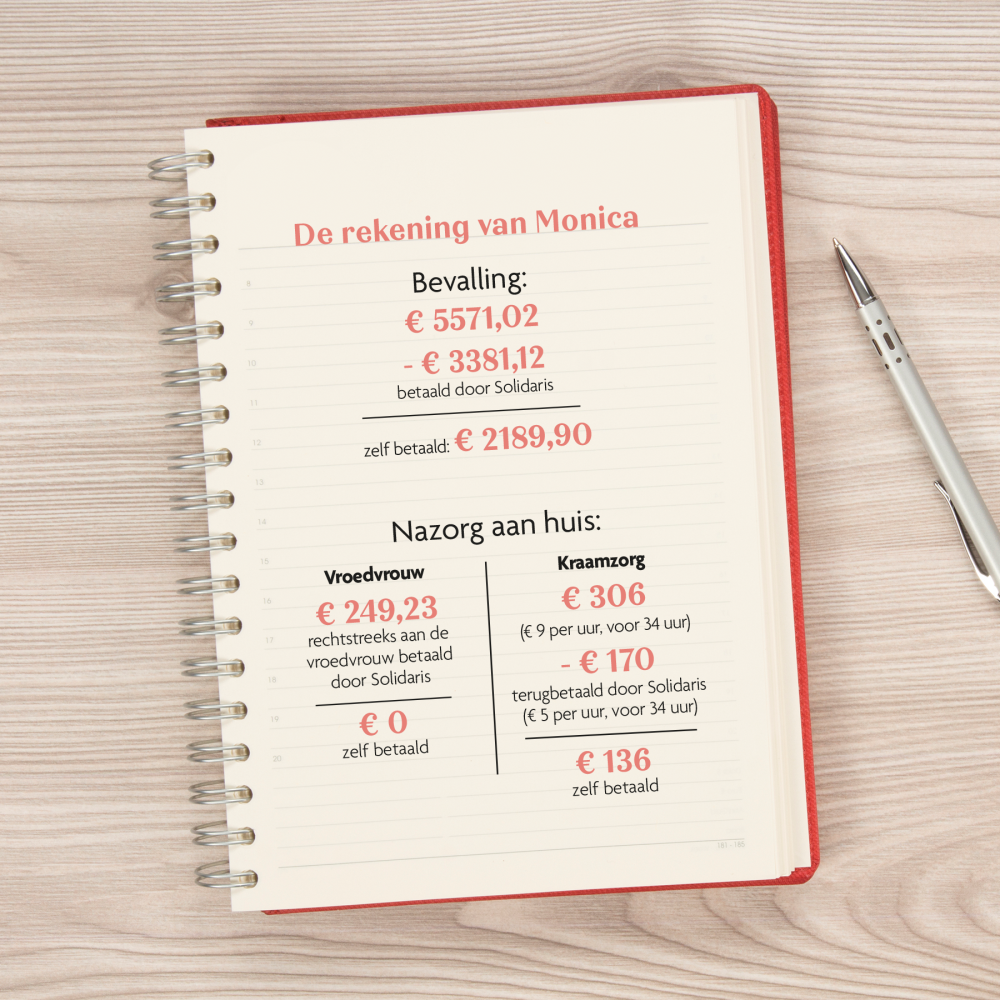 De rekening van Monica
Bevalling:
€ 5571,02
- € 3381,12
betaald door Solidaris
zelf betaald: € 2189,90
Nazorg aan huis:
Vroedvrouw
€ 249,23
rechtstreeks aan de
vroedvrouw betaald
door Solidaris
€ 0
zelf betaald
Kraamzorg
€ 306
(€ 9 per uur, voor 34 uur)
- € 170
terugbetaald door Solidaris
(€ 5 per uur, voor 34 uur)
€ 136
zelf betaald
8
9
10
11
12
13
14
15
16
17
18
19
20